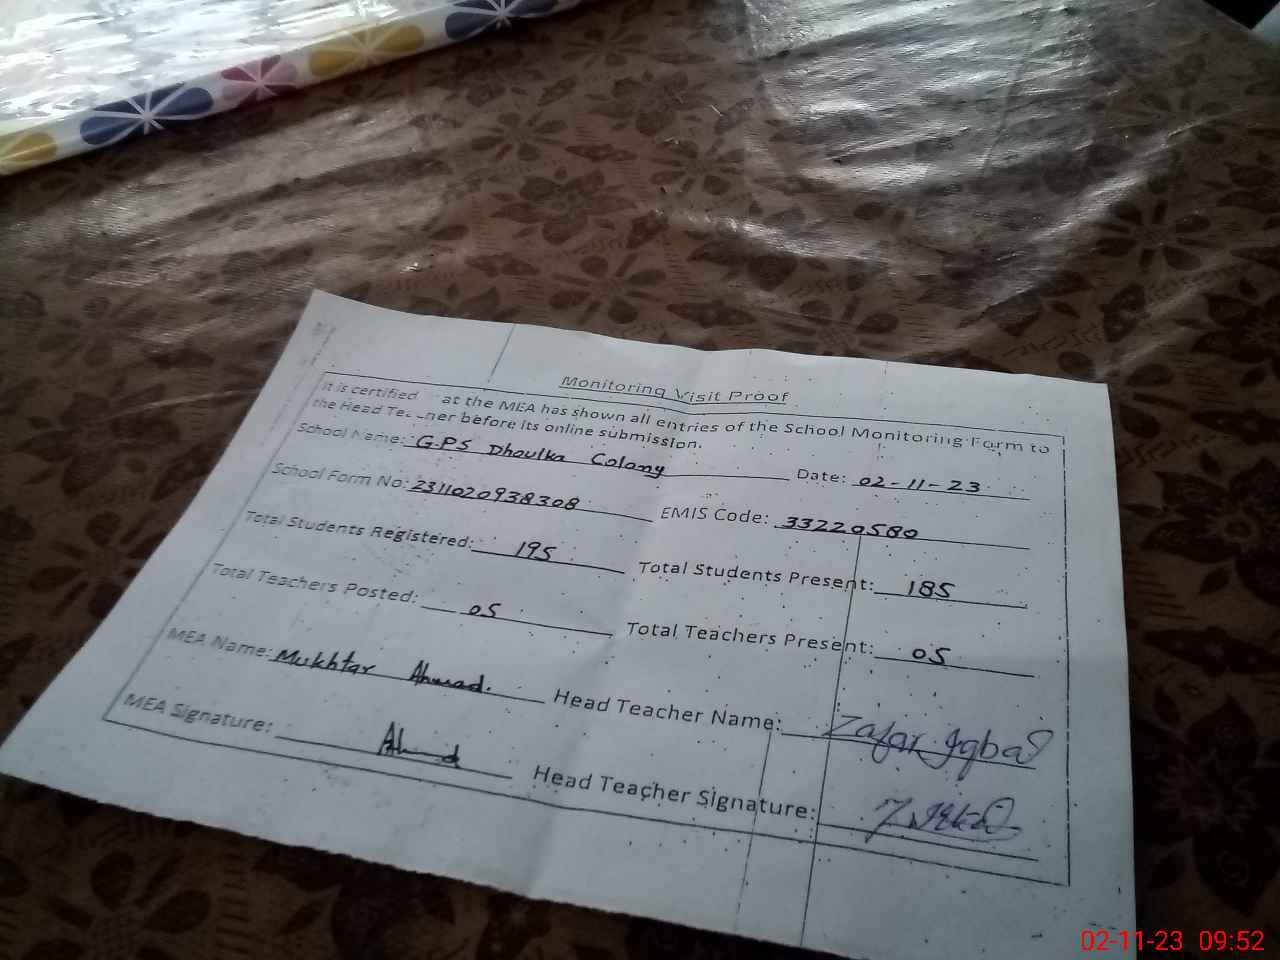 Monitoring Visit Proof
It is certified at the MEA has shown all entries of the School Monitoring Form to
the Head Teacner before its online submission.
School Name: G.PS Dhoulka Colony Date: 02-11-23
School Form No: 2311020938308 EMIS Code: 33220580
Total Students Registered: 195 Total Students Present: 185
Total Teachers Posted: 05 Total Teachers Present: 05
MEA Name: Mukhtar Ahmad. Head Teacher Name: Zafar Iqbal
MEA Signature: Ahmd Head Teacher Signature:
02-11-23 09:52